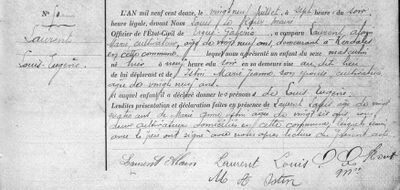 N°
Laurent
Louis Eugène
L'AN mil neuf cent douze, le vingt neuf Juillet, à sept heure du soir
heure légale, devant Nous Louis Le Maire
Officier de l'État-Civil de , a comparu Laurent Alain
Marie cultivateur, âgé de vingt neuf ans, demeurant à
en cette commune, lequel nous a présenté un enfant du sexe masculin,
né hier à neuf heure du soir en sa demeure au dit lieu
de lui déclarant et de Istin Marie Jeanne son épouse cultivatrice
âgée de vingt neuf ans
et auquel enfant il a déclaré donner les prénoms de Louis Eugène.
Lesdites présentation et déclaration faites en présence de Laurent Louis âgé de vingt
ans et de Marie Istin âgé de vingt six ans,
deux cultivateurs domiciliés en cette commune, lesquels
avec le père ont signé avec nous après lecture du présent acte
Laurent Alain Laurent Louis
M Istin